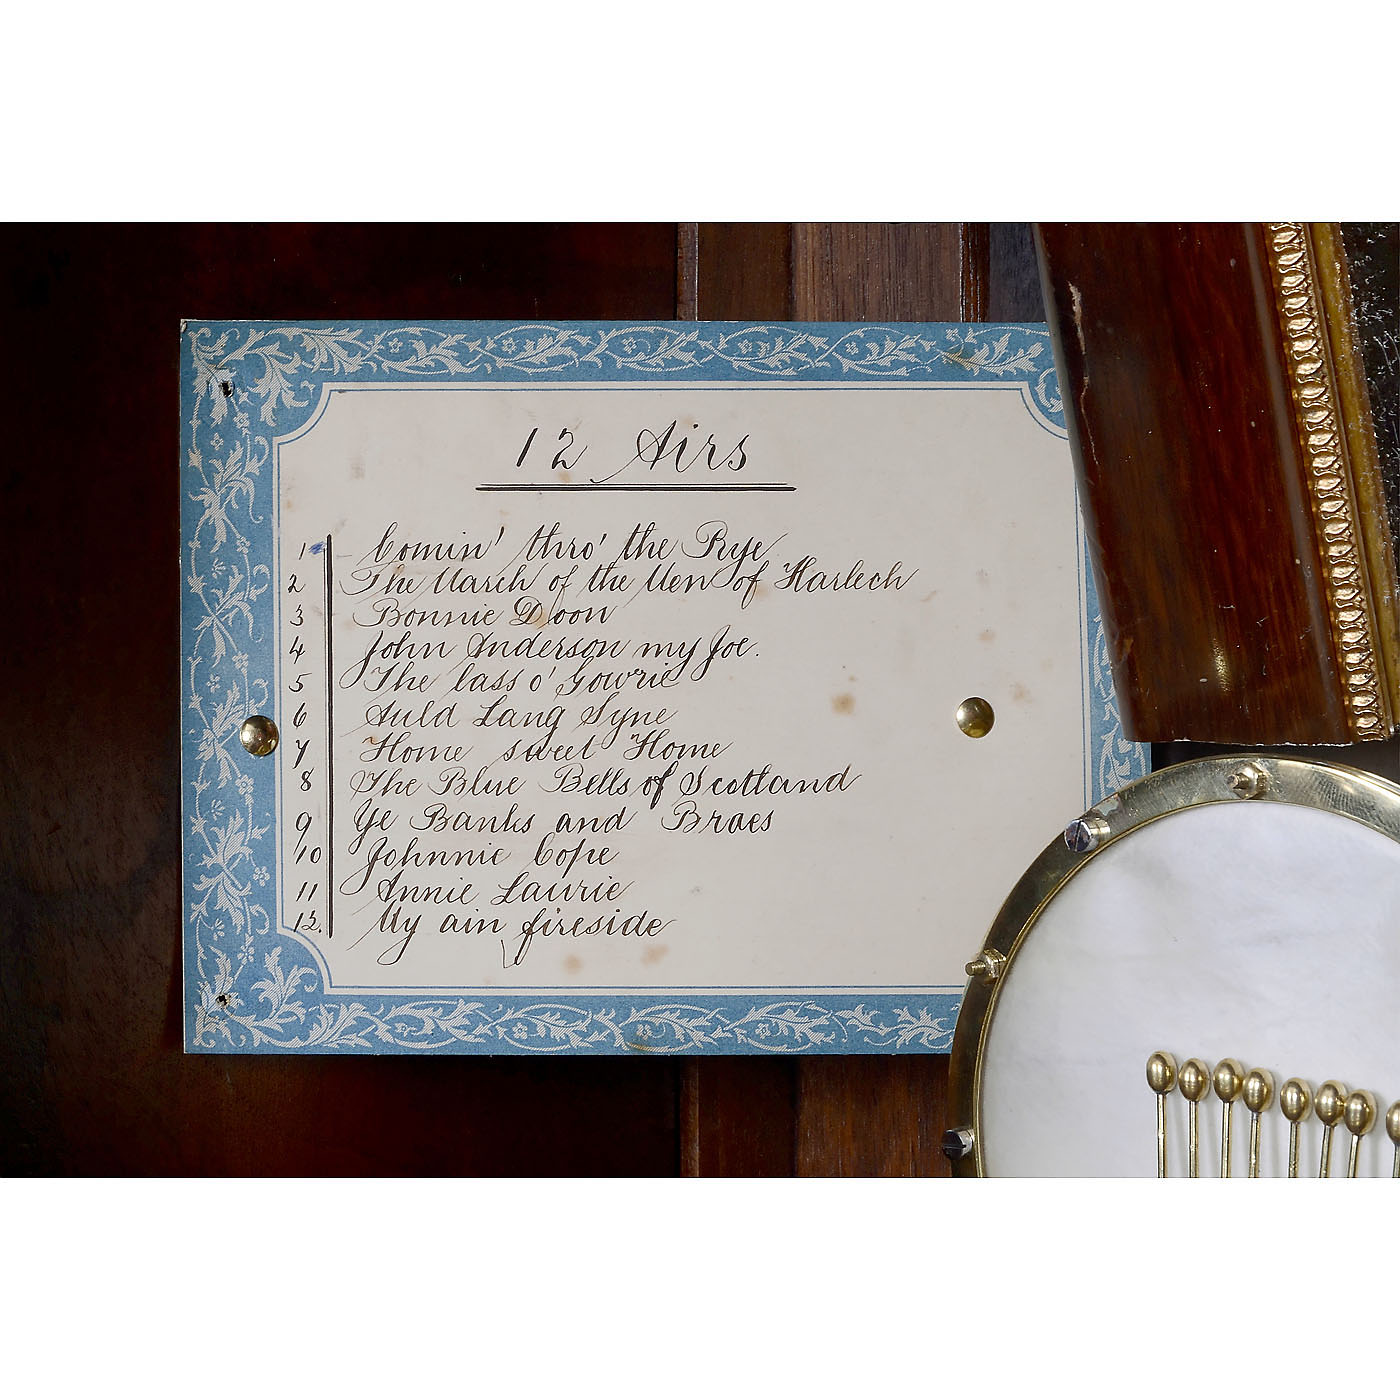 12 Airs
1 - Comin' thro' the Rye
2 The March of the Men of Harlech
3 Bonnie Doon
4 John Anderson my Joe.
5 The lass o' Gowrie
6 Auld Lang Syne
7 Home sweet Home
8 The Blue Bells of Scotland
9 Ye Banks and Braes
10 Johnnie Cope
11 Annie Laurie
12. My ain fireside